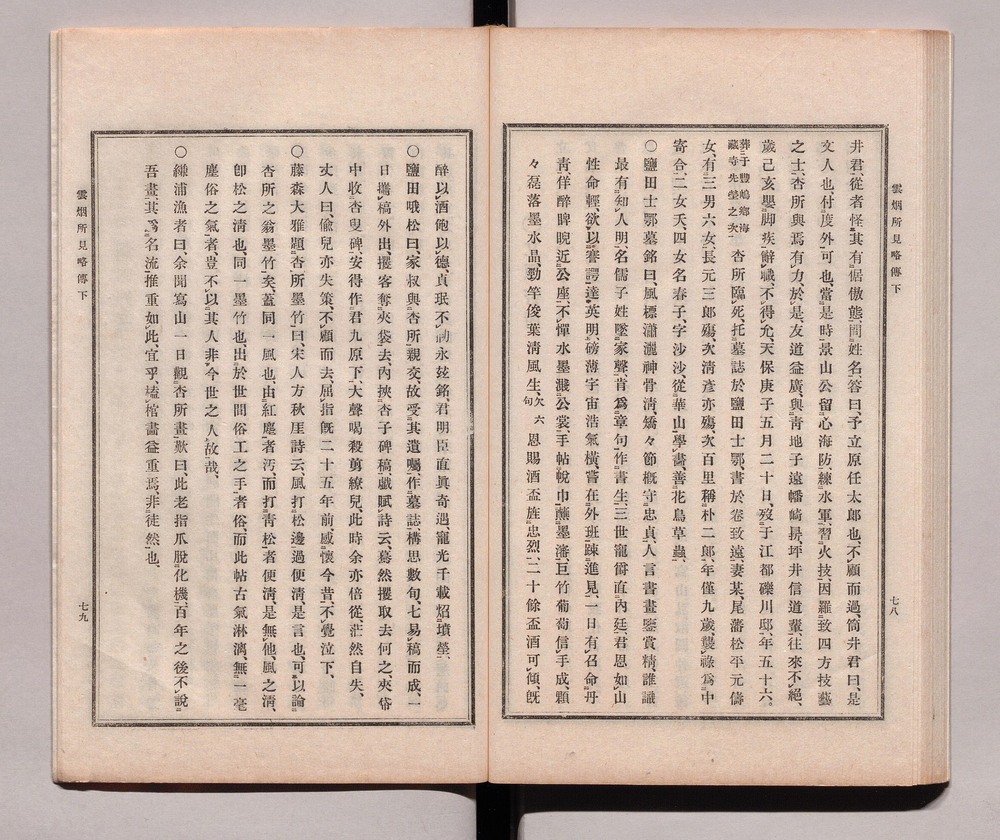 雲烟所見略傳下
七八
井君從者怪其有倨傲態問姓名答曰予立原任太郎也不顧而過筒井君曰是
文人也付度外可也當是時景山公留心海防練水軍習火技因羅致四方技藝
之士杏所與焉有力於是友道益廣與靑地子遠幡崎鼎坪井信道輩往來不絕
歲己亥嬰脚疾辭職不得允天保庚子五月二十日歿于江都礫川邸年五十六
葬于豐嶋鄕海
藏寺先塋之次
杏所臨死托墓誌於鹽田士鄂書於卷致遠妻某尾藩松平元儔
女有三男六女長元三郎殤次淸彥亦殤次百里稱朴二郎年僅九歲襲祿爲中
寄合二女夭四女名春子字沙沙從華山學畵善花鳥草蟲
〇鹽田士鄂墓銘曰風標瀟灑神骨淸矯々節槪守忠貞人言書畫鑒賞精誰識
最有知人明名儒子姓墜家聲肯爲章句作書生三世寵爵直內廷君恩如山
性命輕欲以謇諤達英明磅薄宇宙浩氣橫嘗在外班踈進見一日有召命丹
靑佯醉睥睨近公座不憚水墨濺公裳手帖帨巾蘸墨瀋巨竹葡萄信手成顆
々磊落墨水晶勁竿俊葉淸風生欠六句恩賜酒盃旌忠烈二十餘盃酒可傾旣
醉以酒飽以德貞珉不泐永玆銘君明臣直眞奇遇寵光千載炤墳塋
〇鹽田哦松曰家叔與杏所親交故受其遺囑作墓誌構思數旬七易稿而成一
日攜稿外出攫客奪夾袋去內挾杏子碑稿戲賦詩云驀然攫取去何之夾帒
中收杏叟碑安得作君九原下大聲喝殺剪綹兒此時余亦倍從茫然自失
丈人曰偸兒亦失策不顧而去屈指旣二十五年前感懷今昔不覺泣下
〇藤森大雅題杏所墨竹曰宋人方秋厓詩云風打松邊過便淸是言也可以論
杏所之翁墨竹矣蓋同一風也由紅塵者汚而打靑松者便淸是無他風之淸
卽松之淸也同一墨竹也出於世間俗工之手者俗而此帖古氣淋漓無一毫
塵俗之氣者豈不以其人非今世之人故哉
〇綠浦漁者曰余聞寫山一日觀杏所畫歎曰此老指爪脫化機百年之後不說
吾畫其爲名流推重如此宜乎榼棺畵益重焉非徒然也
雲烟所見略傳下
七九